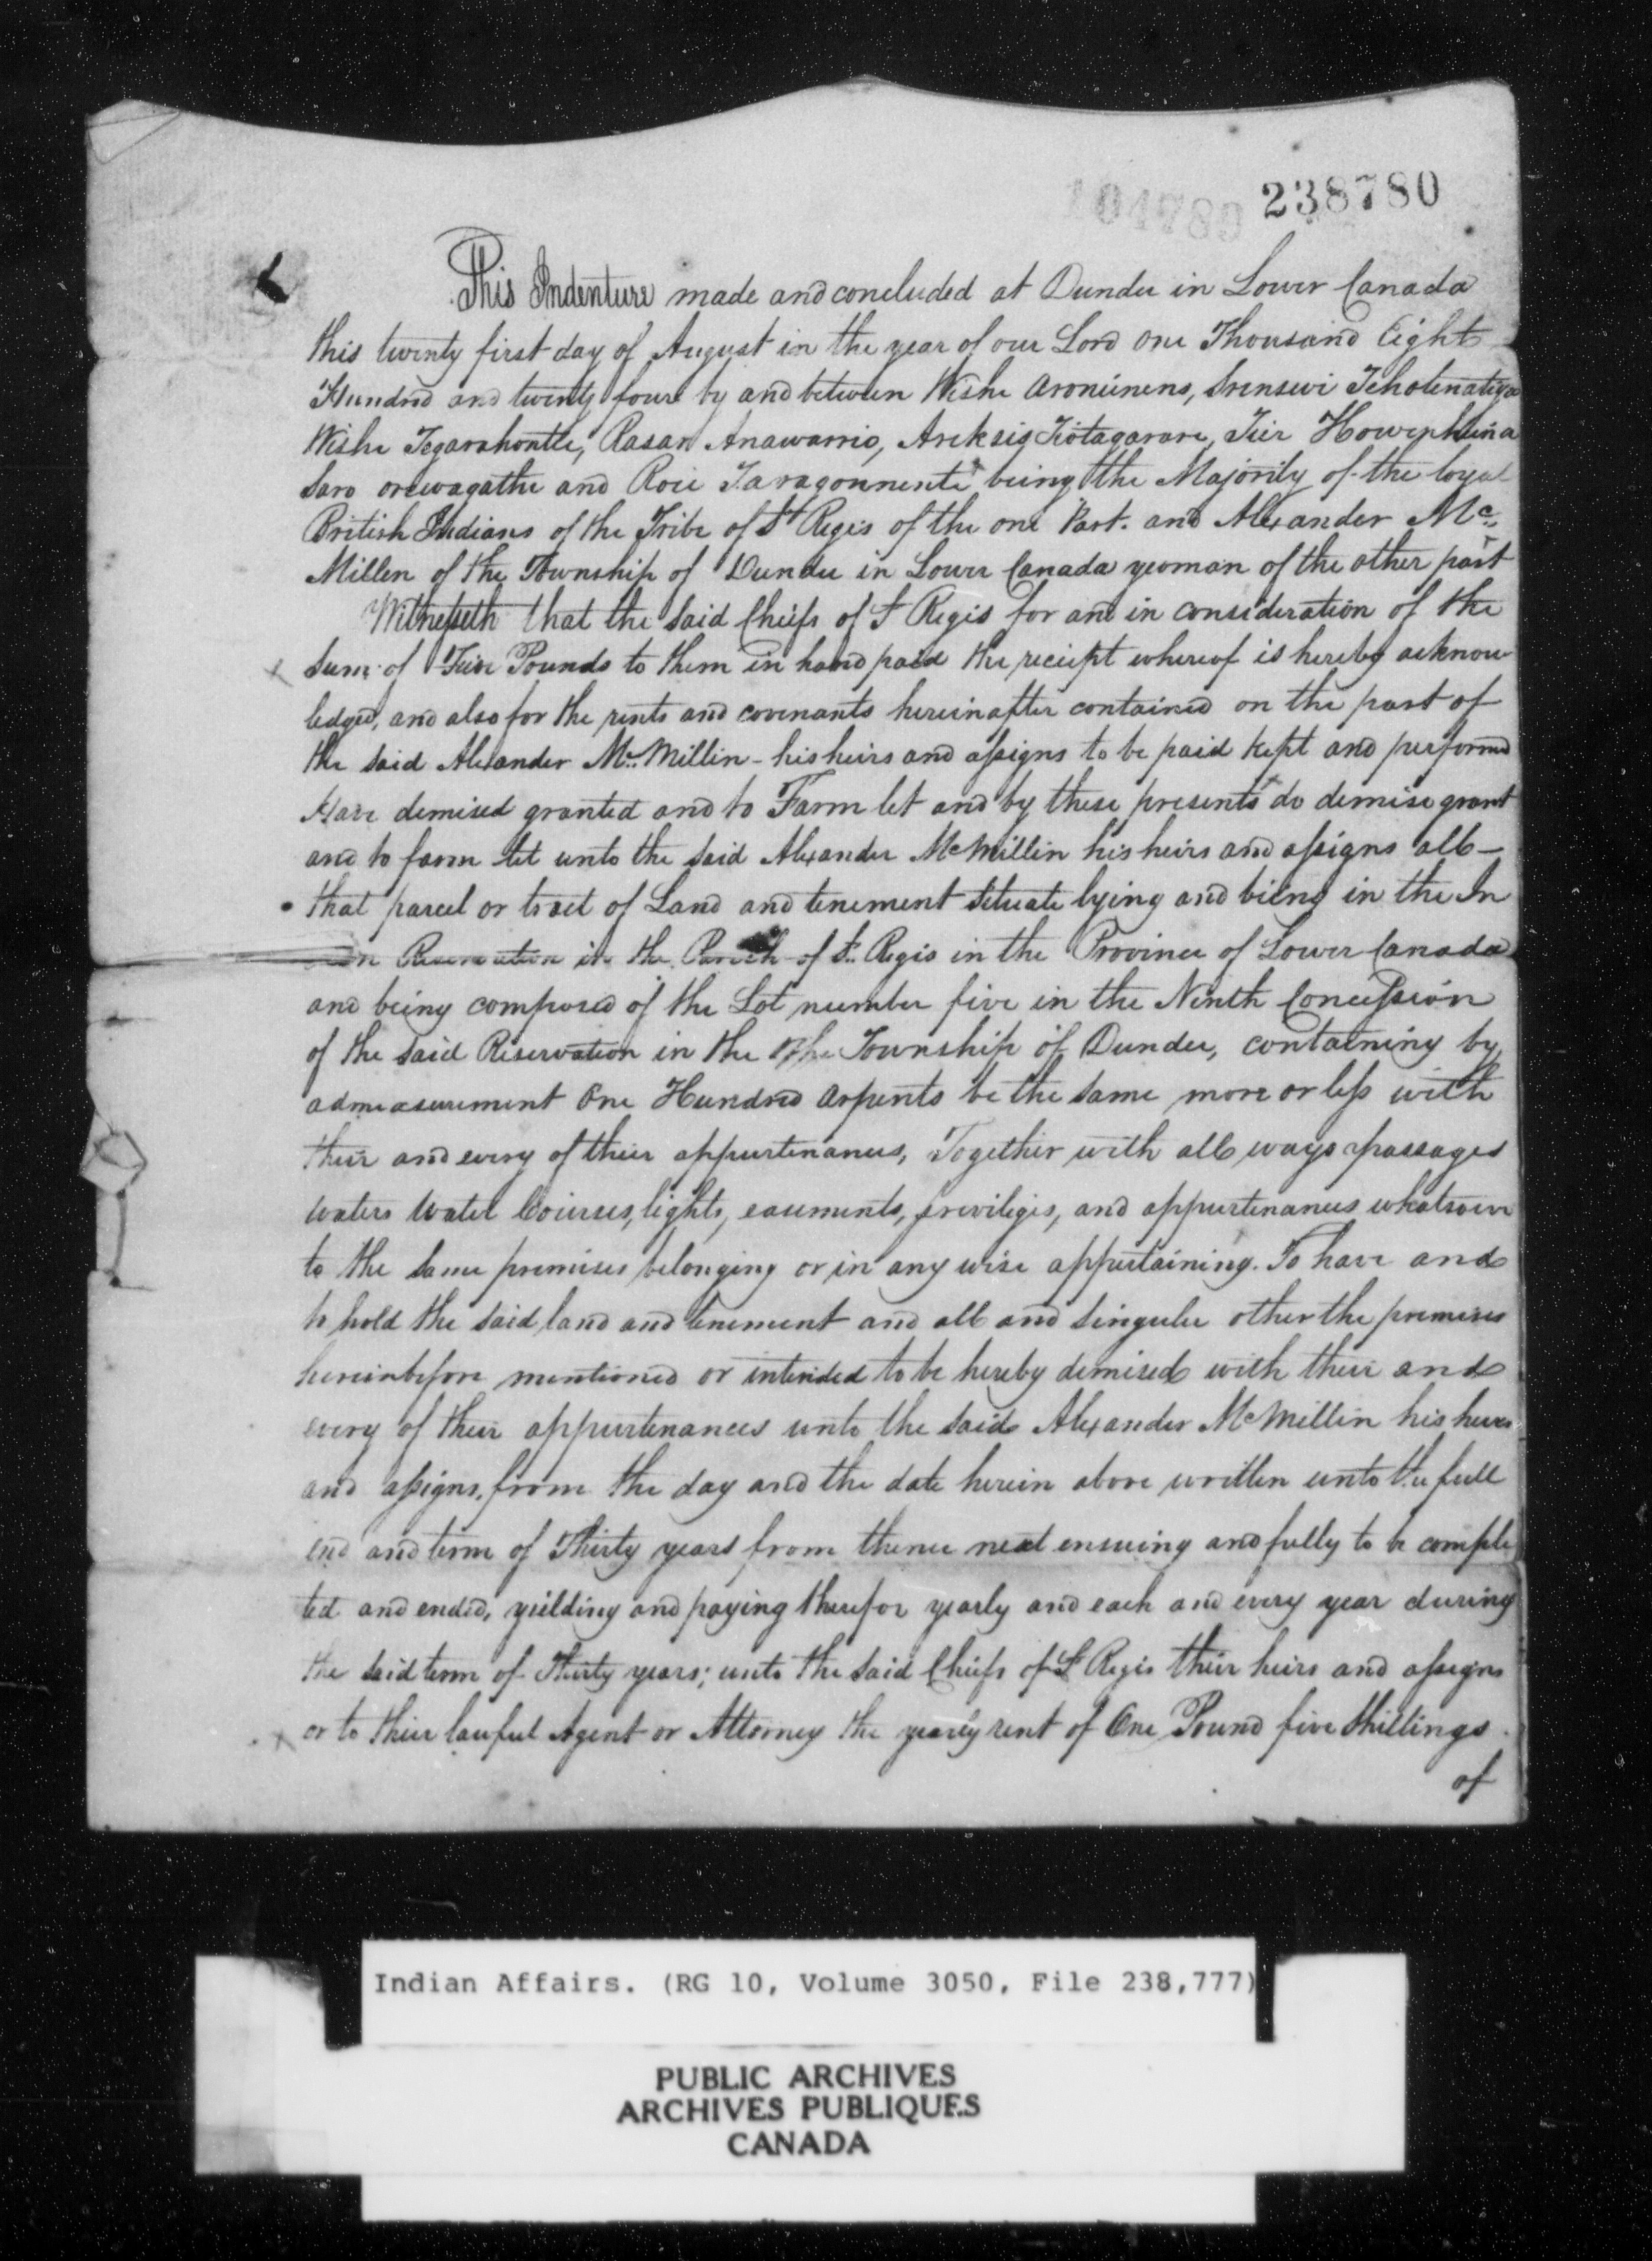 238780
This Indenture made and concluded at Dundee in Lower Canada
this twenty first day of August in the year of our Lord One Thousand Eight
Hundred and twenty four by and between Wishe Aroniinens, Srensewi Tehotenatiga
Wishe Tegarahontle, Rasar Anawario, Areksis Tiotagarare, Tier
Saro orewagathe and Roie Taragonnente being the Majority of the loyal
British Indians of the Tribe of St Regis of the one Part. and Alexander Mc
Millen of the Township of Dundee in Lower Canada yeoman of the other part
Witnesseth that the Said Chiefs of St Regis for and in consideration of the
Sum of Five Pounds to them in hand paid the reciept whereof is hereby acknow
ledged, and also for the rents and covenants hereinafter contained on the part of
the said Alexander McMillin - his heirs and assigns to be paid kept and performed
Have demised granted and to Farm let and by these presents do demise grant
and to farm let unto the Said Alexander McMillin his heirs and assigns all -
that parcel or tract of Land and tenement Situate lying and bieng in the In
in Reservation in the Parish of St. Regis in the Province of Lower Canada
and being composed of the Lot number five in the Ninth Concession
of the Said Reservation in the Township of Dundee, containing by
admeasurement One Hundred Arpents be the same more or less with
their and every of their appurtenances, Together with all ways passages
waters Water Courses, lights, easments, privileges, and appurtenances whatsoever
to the Same premises belonging or in any wise appertaining. To have and
to hold the Said land and tenement and all and Singular other the premises
hereinbefore mentioned or intended to be hereby demised with their and
every of their appurtenances unto the Said Alexander McMillin his heirs
and assigns, from the day and the date herein above written unto the full
end and term of Thirty years from thence next ensuing and fully to be comple
ted and ended, yielding and paying therefor yearly and each and every year during
the Said term of Thirty years; unto the Said Chiefs of St Regis their heirs and assigns
or to their lawful Agent or Attorney the yearly rent of One Pound five Shillings
of
Indian Affairs. (RG 10, Volume 3050, File 238,777)
PUBLIC ARCHIVES
ARCHIVES PUBLIQUES
CANADA